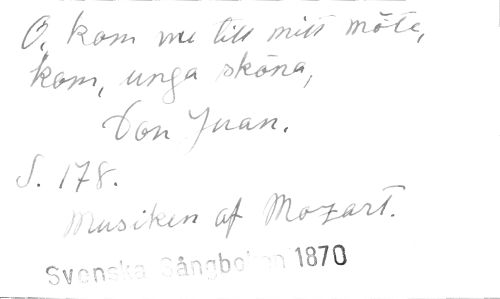 O, kom nu till mitt möte,
kom, unga sköna,
Don Juan.
S. 178.
Musiken af Mozart.
Svenska Sångboken 1870